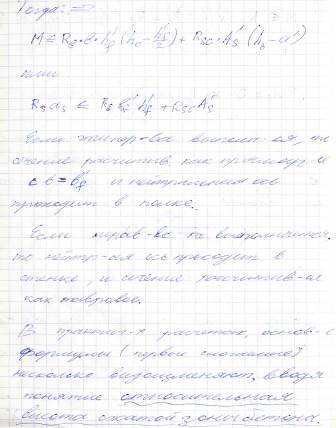 Тогда: ⇒
M ≤ R_в·в·h'_f (h₀ - h'_f/2) + R_sc·A'_s (h₀ - a')
или
R_s a_s ≤ R_в b'_f h'_f + R_sc A'_s
Если нерав-во выполн-ся, то
сечение расчитыв. как прямоуг-е
с b = b'_f и нейтральная ось
проходит в полке.
Если нерав-во не выполняется,
то нейтр-ая ось проходит в
стенке, и сечение расчитыв-ся
как тавровое.
В практич-х расчетах, основ-е
формулы (первое слогаемое)
несколько видоизменяют, вводя
понятие относительная
высота сжатой зоны бетона.